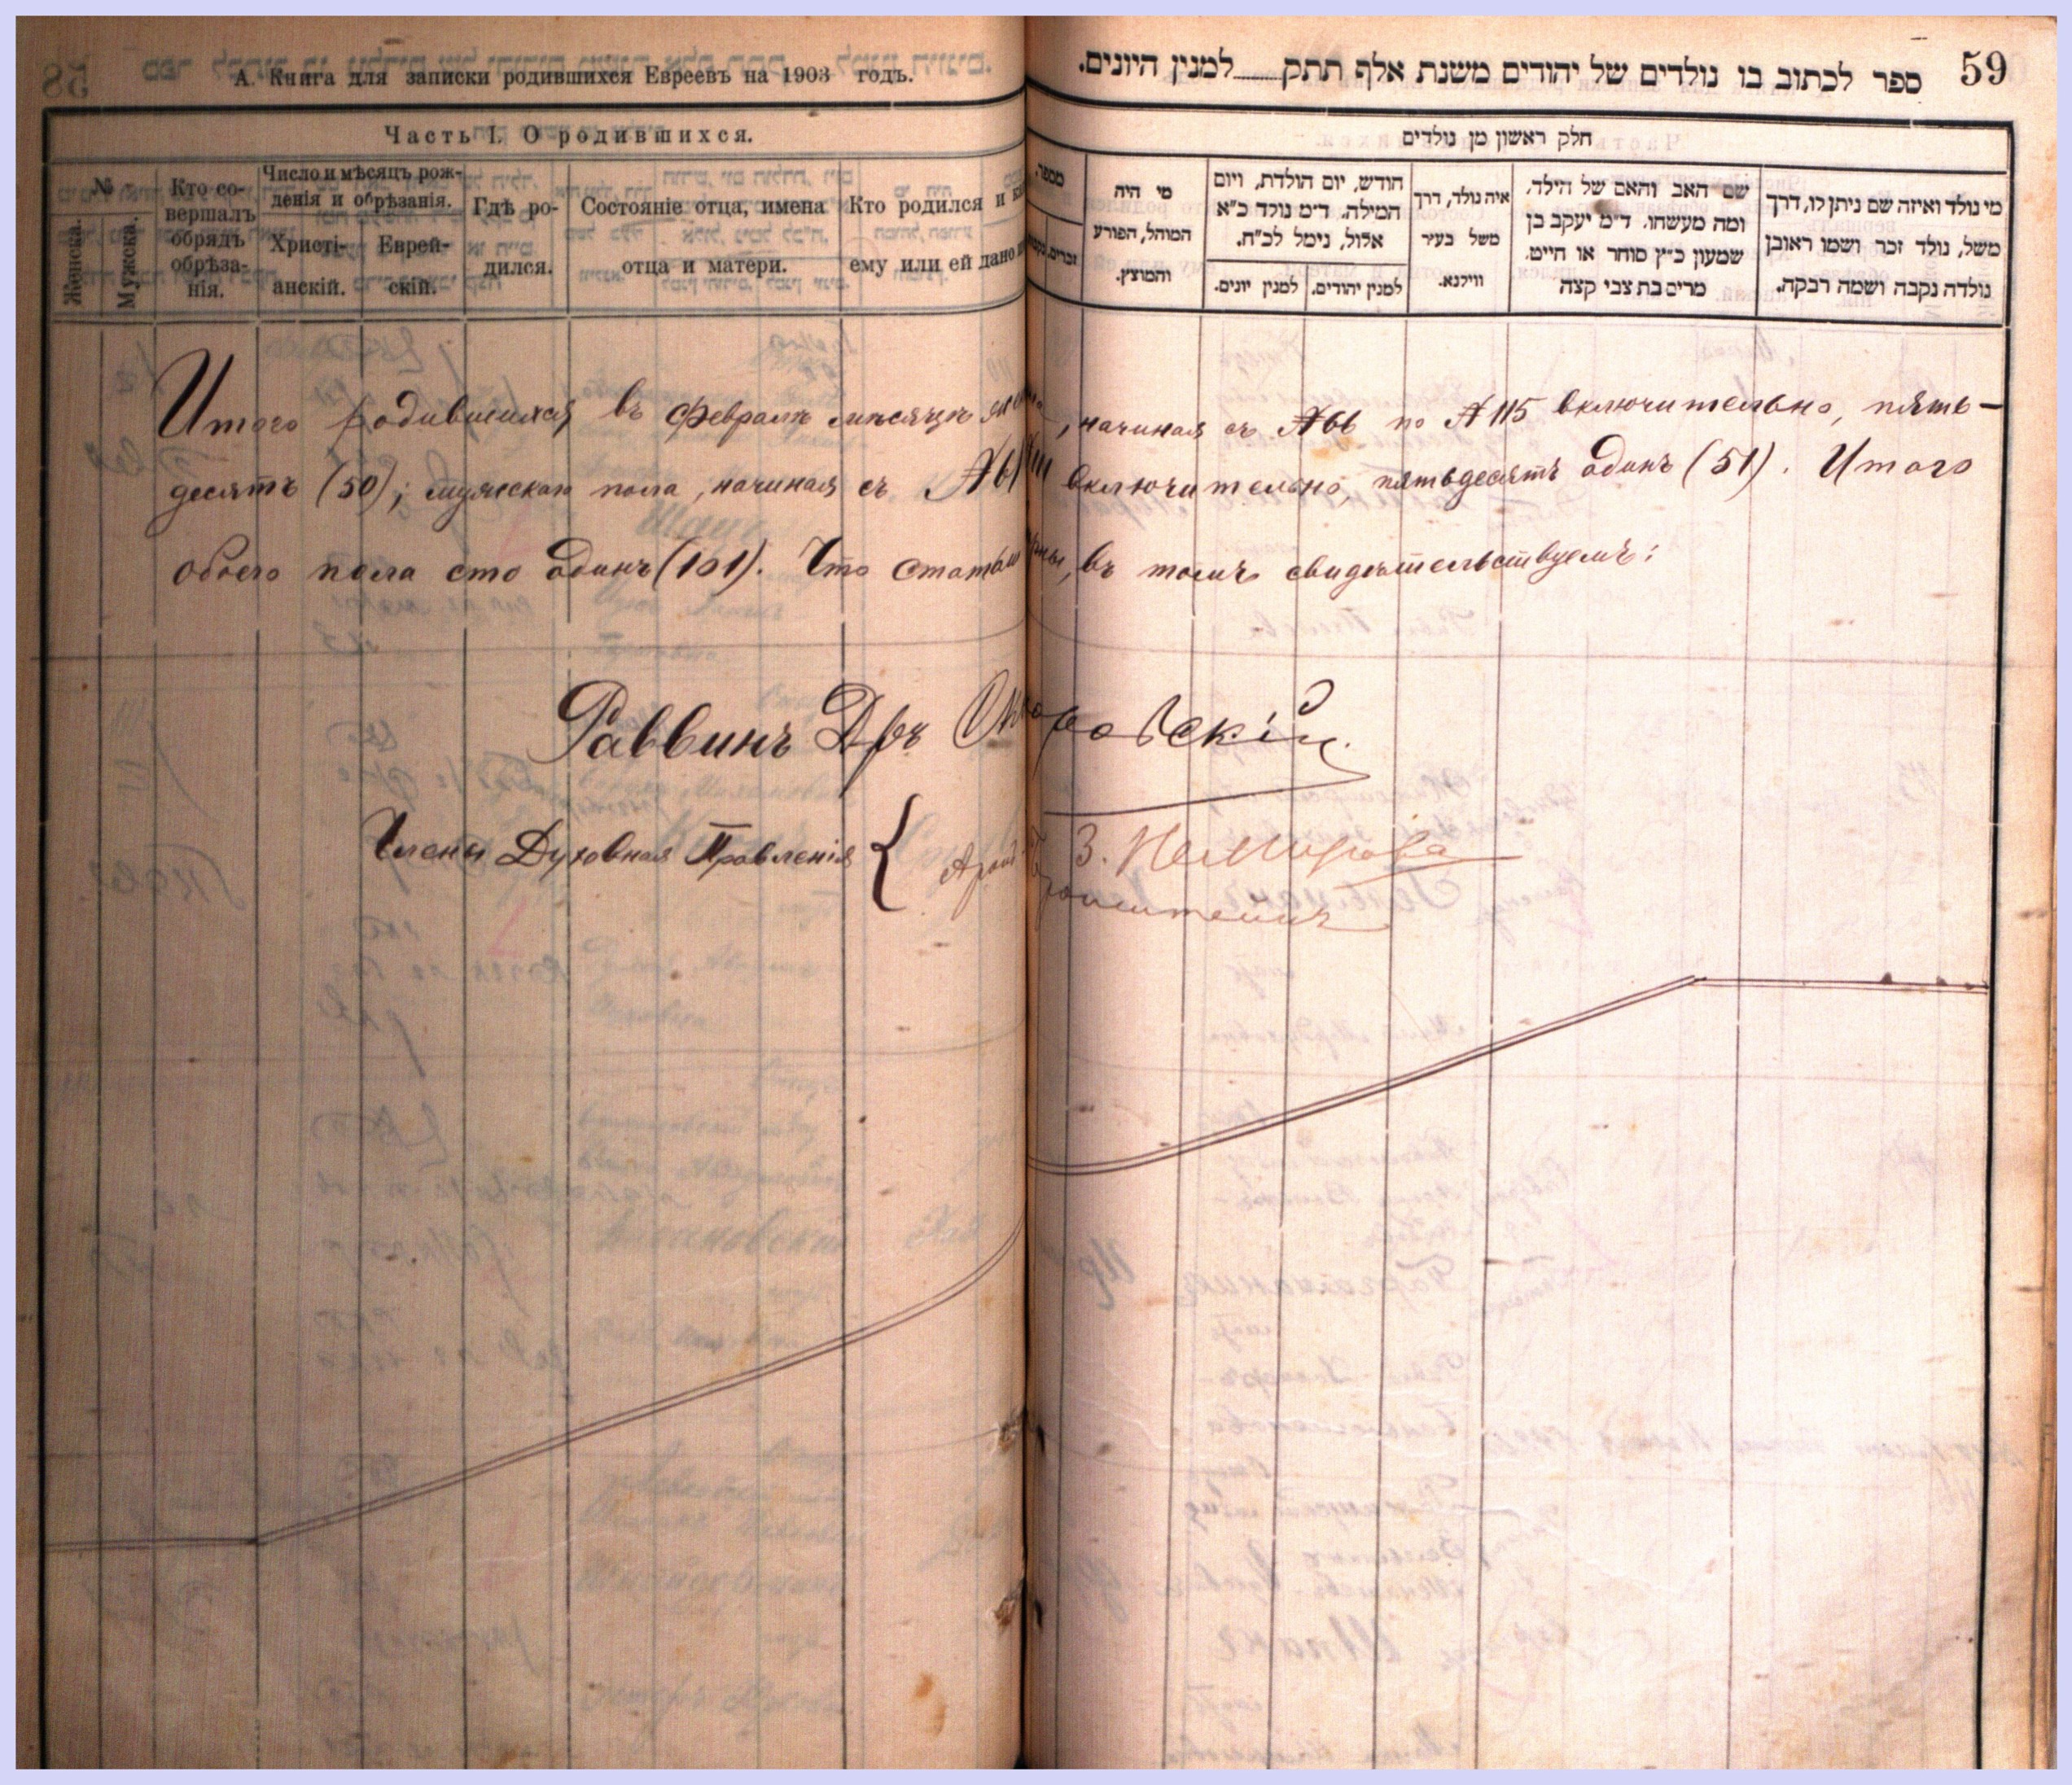 А. Книга для записки родившихся Евреевъ на 1903 годъ.
Часть I. О родившихся.
№
Женска.
Мужска.
Кто со-
вершалъ
обрядъ
обрѣза-
нія.
Число и мѣсяцъ рож-
денія и обрѣзанія.
Христі-
анскій.
Еврей-
скій.
Гдѣ ро-
дился.
Состояніе отца, имена
отца и матери.
Кто родился и
ему или ей дано
59
ספר לכתוב בו נולדים של יהודים משנת אלף תתק למנין היונים.
חלק ראשון מן נולדים
מספר.
זכרים.
מי היה
המוהל, הפורע
והמוצץ.
חודש, יום הולדת, ויום
המילה. ד״מ נולד כ״א
אלול, נימל לכ״ח.
למנין יהודים.
למנין יונים.
איה נולד, דרך
משל בעיר
ווילנא.
שם האב והאם של הילד,
ומה מעשהו. ד״מ יעקב בן
שמעון כ״ץ סוחר או חייט.
מרים בת צבי קצה
מי נולד ואיזה שם ניתן לו, דרך
משל, נולד זכר ושמו ראובן
נולדה נקבה ושמה רבקה.
Итого родившихся въ Февралѣ мѣсяцѣ , начиная съ №66 по №115 включительно, пять-
десятъ (50); мужескаго пола, начиная съ № включительно, пятьдесятъ одинъ (51). Итого
обоего пола сто одинъ (101). Что въ томъ свидѣтельствуемъ:
Раввинъ Дръ
Члены Духовнаго Правленія {
З.